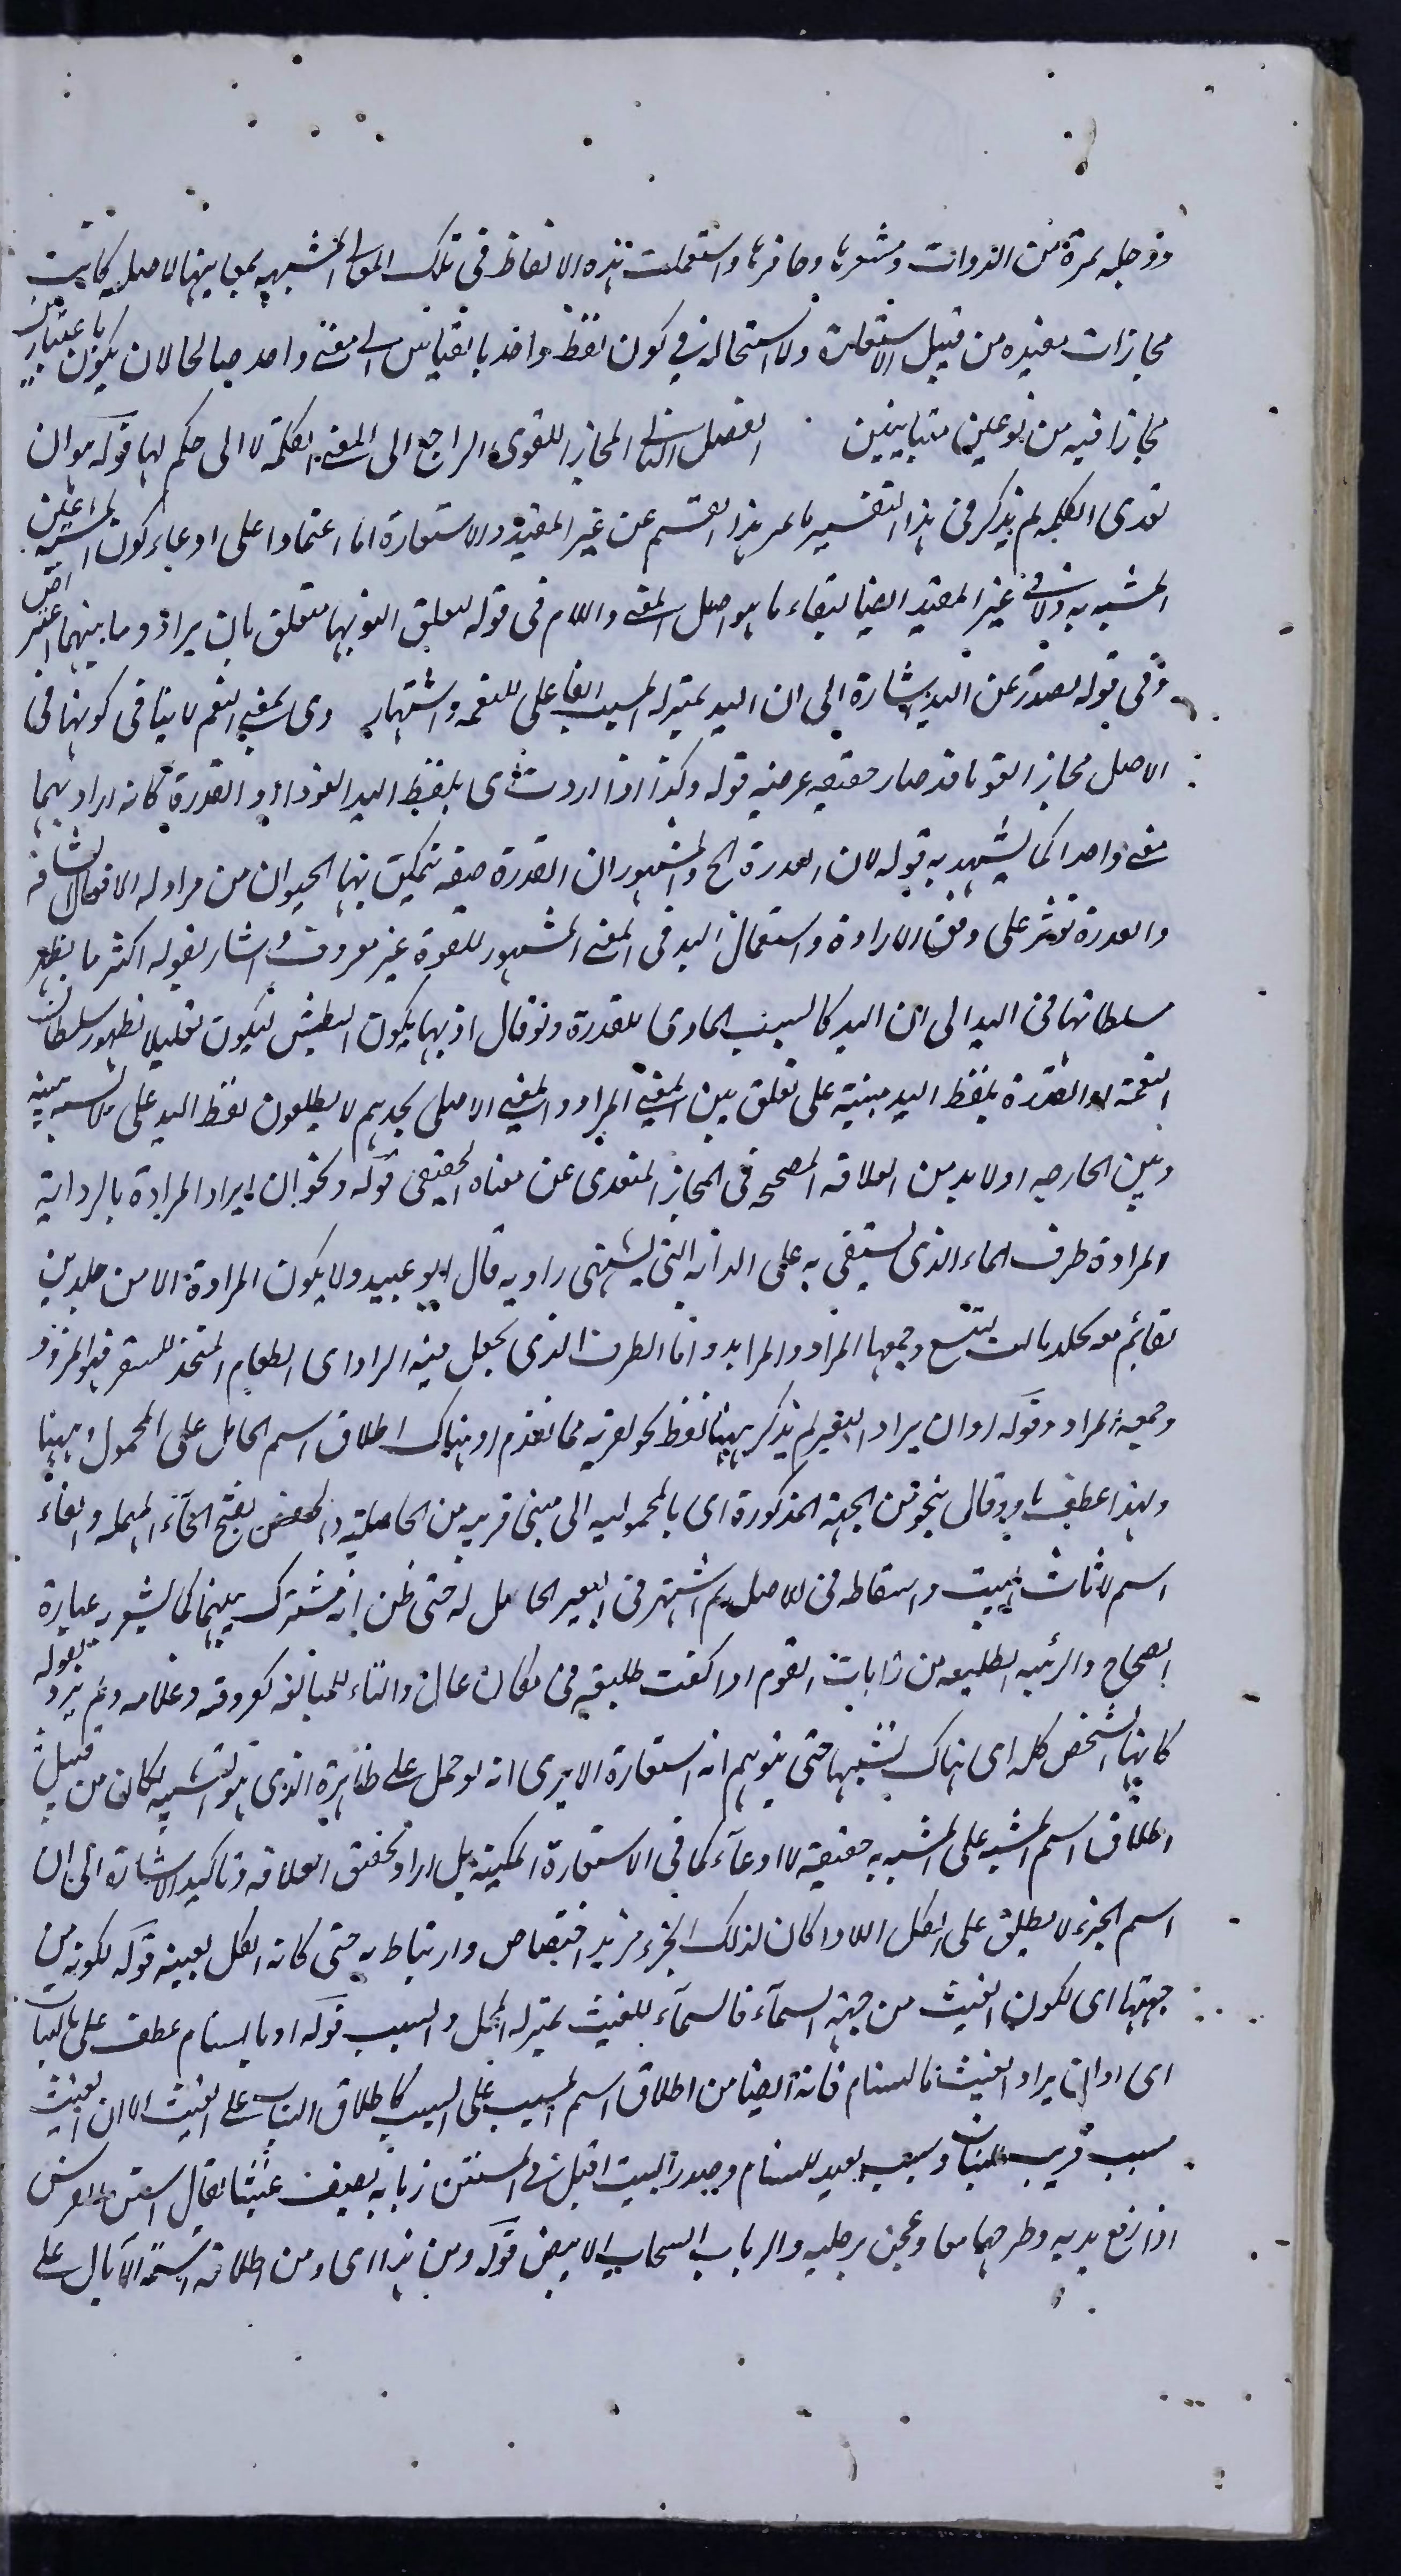 ورجليه بمرة من الذوات ومشعرها وحافرها واستعملت هذه الالفاظ في تلك المعاني المشبهة بمعانيها الاصلية كانت
مجازات مفيدة من قبيل الاستعارة ولا استحالة في كون لفظ واحد بالقياس الى معنى واحد صالحا لان يكون باعتبارين
مجازا فيه من نوعين متباينين الفصل الثاني المجاز اللغوي الراجع الى المعنى الكلمة لا الى حكم لها قوله هو ان
تعدى الكلمة لم يذكر في هذا التفسير ما يميز هذا القسم عن غير المفيد والاستعارة اما اعتمادا على ادعاء كون المشبه عين
المشبه به ولان في غير المفيد ايضا ابقاء ما هو اصل المعنى واللام في قوله لتعلق النعمة بها متعلق بان يراد وما بينهما اعتراض
وفي قوله تصدر عن اليد اشارة الى ان اليد بمنزلة السبب الفاعلي للنعمة واشتهار الايادي بمعنى النعم لا ينافي كونها في
الاصل مجازا لغويا قد صار حقيقة عرفية قوله وكذا اذا اردت اي بلفظ اليد القوة او القدرة كانه اراد بهما
معنى واحدا كما يشهد به قوله لان القدرة الخ والمشهور ان القدرة صفة يتمكن بها الحيوان من مزاولة الافعال الشاقة
والقدرة تؤثر على وفق الارادة واستعمال اليد في المعنى المشهور للقوة غير معروف واشار بقوله اكثر ما يظهر
سلطانها في اليد الى ان اليد كالسبب المادي للقدرة ولو قال اذ بها يكون البطش ليكون تعليلا لظهور سلطان
النعمة او القدرة بلفظ اليد مبنية على تعلق بين المعنى المراد والمعنى الاصلي تجدهم لا يطلقون لفظ اليد على ملابسة بينه
وبين الجارحة اولا بد من العلاقة المصححة في المجاز المتعدى عن معناه الحقيقي قوله ونحو ان يراد المزادة بالراوية
المزادة ظرف الماء الذي يستقى به على الدابة التي تسمى راوية قال ابو عبيد ولا يكون المزادة الا من جلدين
تفأم بجلد ثالث ليتسع وجمعها المزاد والمزايد واما الظرف الذي يجعل فيه الزاد اي الطعام المتخذ للسفر فهو المزود
وجمعه المزاود وقوله او ان يراد البعير لم يذكر ههنا لفظ نحو لقربه مما تقدم اذ هناك اطلاق اسم الحامل على المحمول وههنا
ولهذا عطف باو وقال بنحو من الجهة المذكورة اي بالمحمولية الى مبنى قريبة من الحاملية والحفض بفتح الحاء المهملة والفاء
اسم لاثاث البيت واسقاطه في الاصل ثم اشتهر في البعير الحامل له حتى ظن انه مشترك بينهما كما يشعر به عبارة
الصحاح والربيئة الطليعة من ربأت القوم اذا كنت طليعة في مكان عال والتاء للمبالغة كفروقة وعلامة ولم يرد بقوله
كانها الشخص كله اي هناك تشبيها حتى يتوهم انه استعارة الا يرى انه لو حمل على ظاهره الذي هو التشبيه لكان من قبيل
اطلاق اسم المشبه على المشبه به حقيقة لا ادعاء كما في الاستعارة المكنية بل اراد تحقيق العلاقة وتاكيد الاشارة الى ان
اسم الجزء لا يطلق على الكل الا اذا كان لذلك الجزء مزيد اختصاص وارتباط به حتى كانه الكل بعينه قوله لكونه من
جهتها اي لكون الغيث من جهة السماء فالسماء للغيث بمنزلة المحل والسبب قوله او بالسنام عطف على بالنبات
اي او ان يراد الغيث بالسنام فانه ايضا من اطلاق اسم المسبب على السبب كاطلاق النبات على الغيث الا ان الغيث
سبب قريب للنبات وسبب بعيد للسنام وصدر البيت اقبل في المستن ربابه يصف غيثا يقال استن الفرس
اذا رفع يديه وطرحهما معا وعجن برجليه والرباب السحاب الابيض قوله ومن هذا اي ومن اطلاقه اسنمة الآبال على